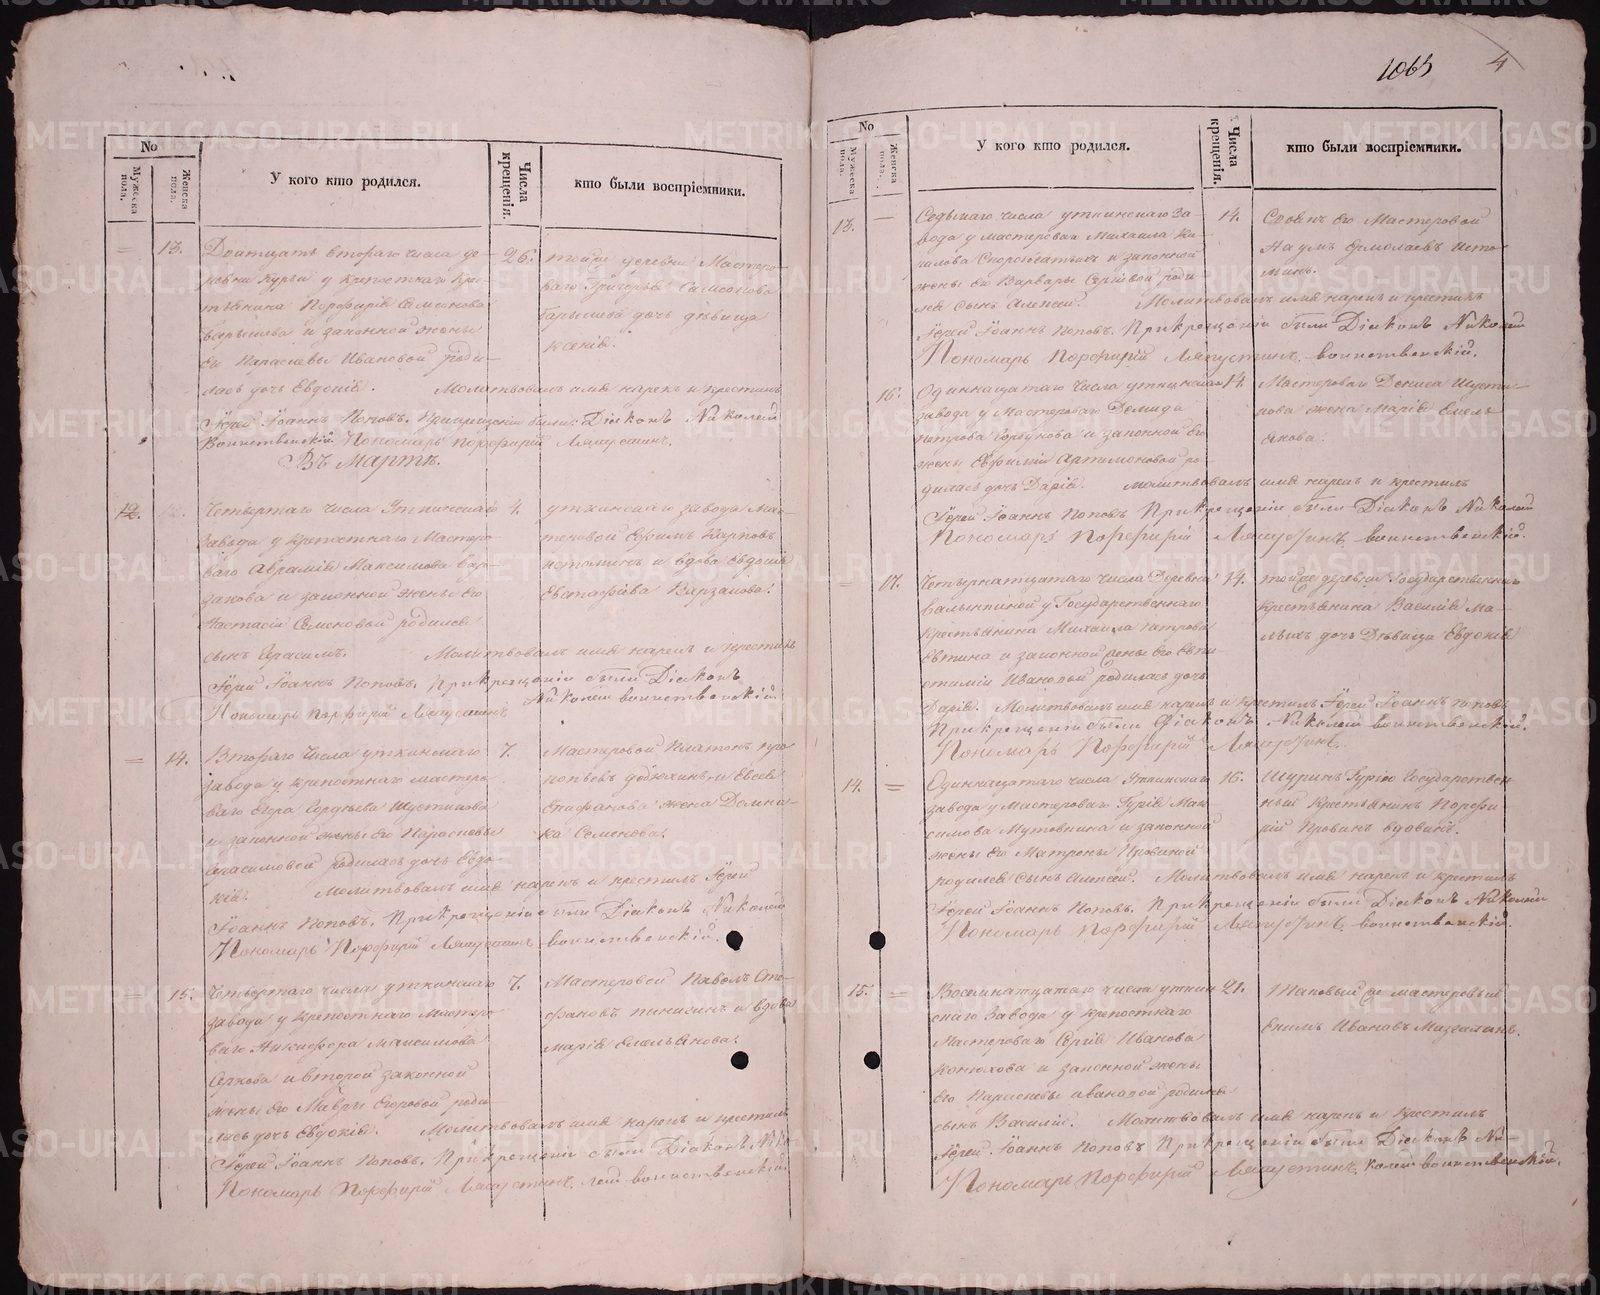 1063
4
№
Мужеска пола.
Женска пола.
У кого кто родился.
Числа крещенія.
кто были воспріемники.
13.
Дватцать втораго числа де-
ревни Курьи у крепостнаго кре-
стьянина Порфирія Самсонова
и законной жены
его Параскевы Ивановой роди-
лась дочь Евдокія. Молитвовалъ имя нарекъ и крестилъ
Іерей Іоаннъ Поповъ. При крещеніи были: Діаконъ Николай
Воинственскій Пономарь Порфирій
26.
тойже деревни Мастеро-
ваго Григорья Самсонова
дочь дѣвица
Ксенія.
Въ Мартѣ.
12.
Четвертаго числа Уткинскаго
завода у крепостнаго Мастеро-
ваго Аврамія Максимова
и законной жены его
Настасіи Семеновой родился
сынъ Герасимъ. Молитвовалъ имя нарекъ и крестилъ
Іерей Іоаннъ Поповъ. При крещеніи были Діаконъ
Николай Воинственскій
Пономарь Порфирій
4.
уткинскаго завода Мас-
теровой Ефимъ Карповъ
и вдова Евдокія
Евстафіева
14.
Втораго числа уткинскаго
завода у крепостнаго мастеро-
ваго Егора Шустикова
и законной жены его Парасковьи
Герасимовой родилась дочь Евдо-
кія. Молитвовалъ имя нарекъ и крестилъ Іерей
Іоаннъ Поповъ. При крещеніи были Діаконъ Николай
Пономарь Порфирій воинственскій.
7.
Мастеровой Платонъ Про-
копьевъ и Евсевія
Епифанова жена Домни-
ка Семенова.
15.
Четвертаго числа уткинскаго
завода у крепостнаго Мастеро-
ваго Никифора Максимова
и второй законной
жены его Мавры Егоровой роди-
лась дочь Евдокія. Молитвовалъ имя нарекъ и крестилъ
Іерей Іоаннъ Поповъ. При крещеніи были Діаконъ Нико-
Пономарь Порфирій лай воинственскій.
7.
Мастеровой Павелъ Сте-
фановъ и вдова
Марія Емельянова.
№
Мужеска пола.
Женска пола.
У кого кто родился.
Числа крещенія.
кто были воспріемники.
13.
Седьмаго числа уткинскаго за-
вода у мастероваго Михаила Ки-
рилова и законной
жены его Варвары Сергіевой роди-
лся сынъ Алексей. Молитвовалъ имя нарекъ и крестилъ
Іерей Іоаннъ Поповъ. При крещеніи были Діаконъ Николай
Пономарь Порфирій воинственскій.
14.
его Мастеровой
Наумъ Ермолаевъ Исто-
минъ.
16.
Одиннацатаго числа уткинскаго
завода у Мастероваго Демида
Петрова Горбунова и законной его
жены Евфиміи Артимоновой ро-
дилась дочь Дарія. Молитвовалъ имя нарекъ и крестилъ
Іерей Іоаннъ Поповъ При крещеніи были Діаконъ Николай
Пономарь Порфирій воинственскій.
14.
Мастероваго Дениса Шусти-
кова жена Марія Емель-
янова.
17.
Четырнатцатаго числа Деревни
у Государственнаго
Крестьянина Михаила Петрова
и законной жены его
Ивановой родилась дочь
Дарія. Молитвовалъ имя нарекъ и крестилъ Іерей Іоаннъ Поповъ
При крещеніи были Діаконъ Николай воинственскій.
Пономарь Порфирій
14.
тойже деревни Государственнаго
Крестьянина Василія Ма-
лыхъ дочь Девица Евдокія
14.
Одиннацатаго числа Уткинскаго
завода у Мастероваго Гурія Мак-
симова Мутовкина и законной
жены его Матроны
родился сынъ Алексей. Молитвовалъ имя нарекъ и крестилъ
Іерей Іоаннъ Поповъ. При крещеніи были Діаконъ Николай
Пономарь Порфирій воинственскій.
16.
Шуринъ Гурію Государствен-
ный Крестьянинъ Порфи-
рій
15.
Восемнатцатаго числа уткин-
скаго завода у крепостнаго
Мастероваго Сергія Иванова
Конюхова и законной жены
его Парасковьи Ивановой родился
сынъ Василій. Молитвовалъ имя нарекъ и крестилъ
Іерей Іоаннъ Поповъ При крещеніи были Діаконъ Ни-
Пономарь Порфирій колай воинственскій.
21.
мастеровый
Екимъ Ивановъ
METRIKI.GASO-URAL.RU